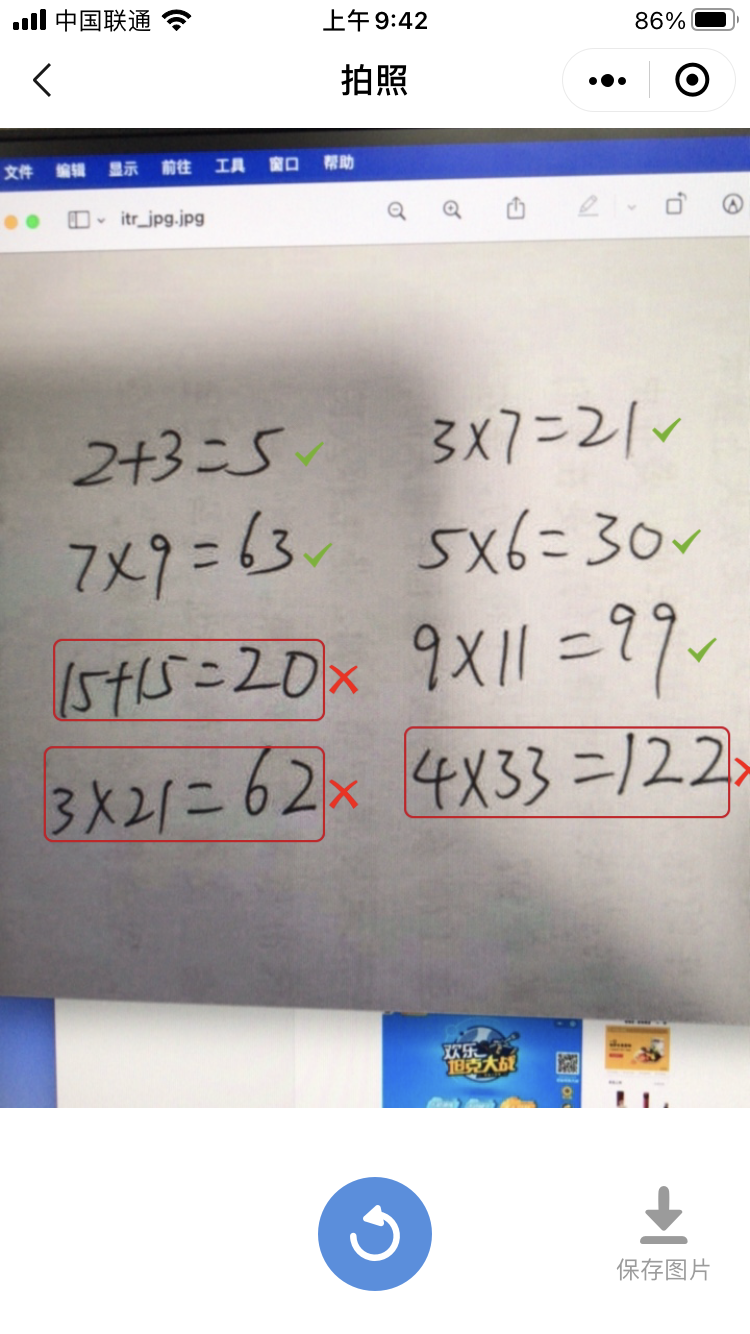 中国联通 上午9:42 86%
拍照
文件 编辑 显示 前往 工具 窗口 帮助
itr_jpg.jpg
2+3=5 3×7=21
7×9=63 5×6=30
15+15=20 9×11=99
3×21=62 4×33=122
欢乐
坦克大战
保存图片